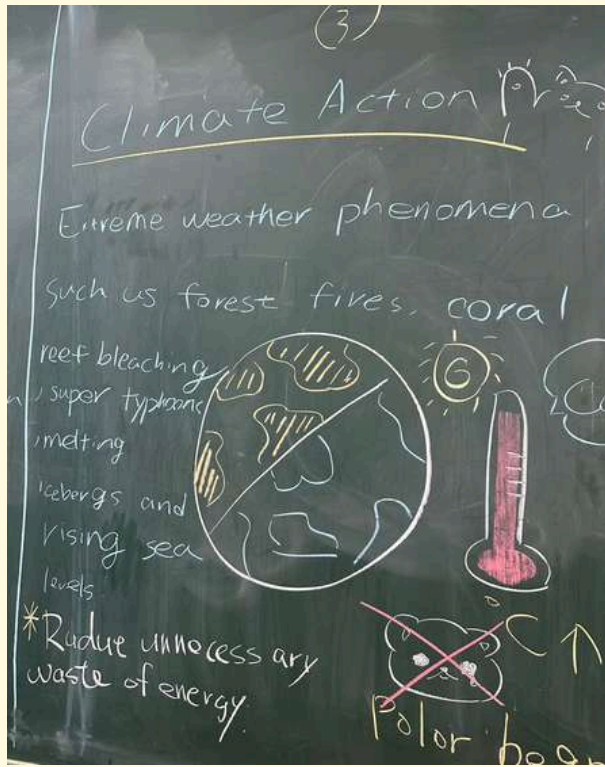 (3)
Climate Action
Extreme weather phenomena
such us forest fires, coral
reef bleaching
, super typhoons
, melting
icebergs and
rising sea
levels.
°C ↑
* Radue unnocessary
waste of energy.
Polor bear